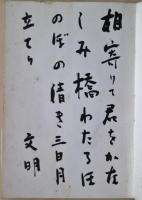 相寄りて君をかな
しみ橋わたるほ
のぼの清き三日月
立てり
文明